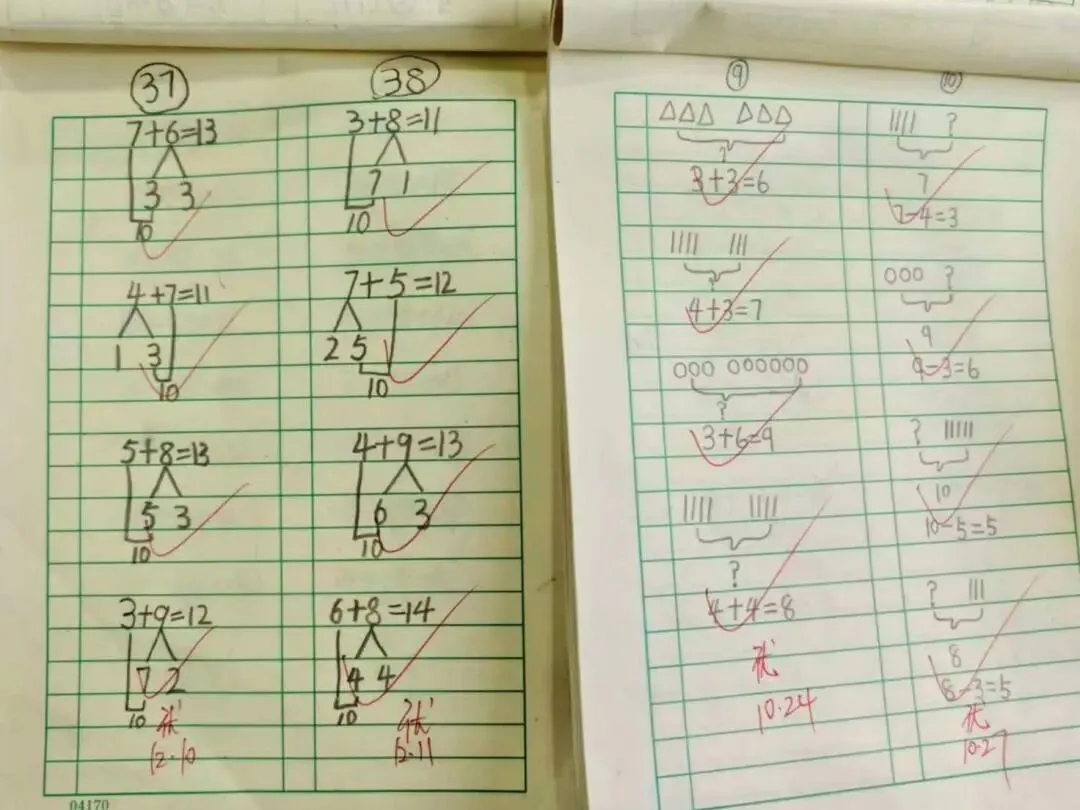 37
7+6=13
3 3
10
4+7=11
1 3
10
5+8=13
5 3
10
3+9=12
7 2
10
12.10
04170
38
3+8=11
7 1
10
7+5=12
2 5
10
4+9=13
6 3
10
6+8=14
4 4
10
12.11
9
?
3+3=6
?
4+3=7
?
3+6=9
?
4+4=8
10.24
10
?
7
7-4=3
?
9
9-3=6
?
10
10-5=5
?
8
8-3=5
10.27